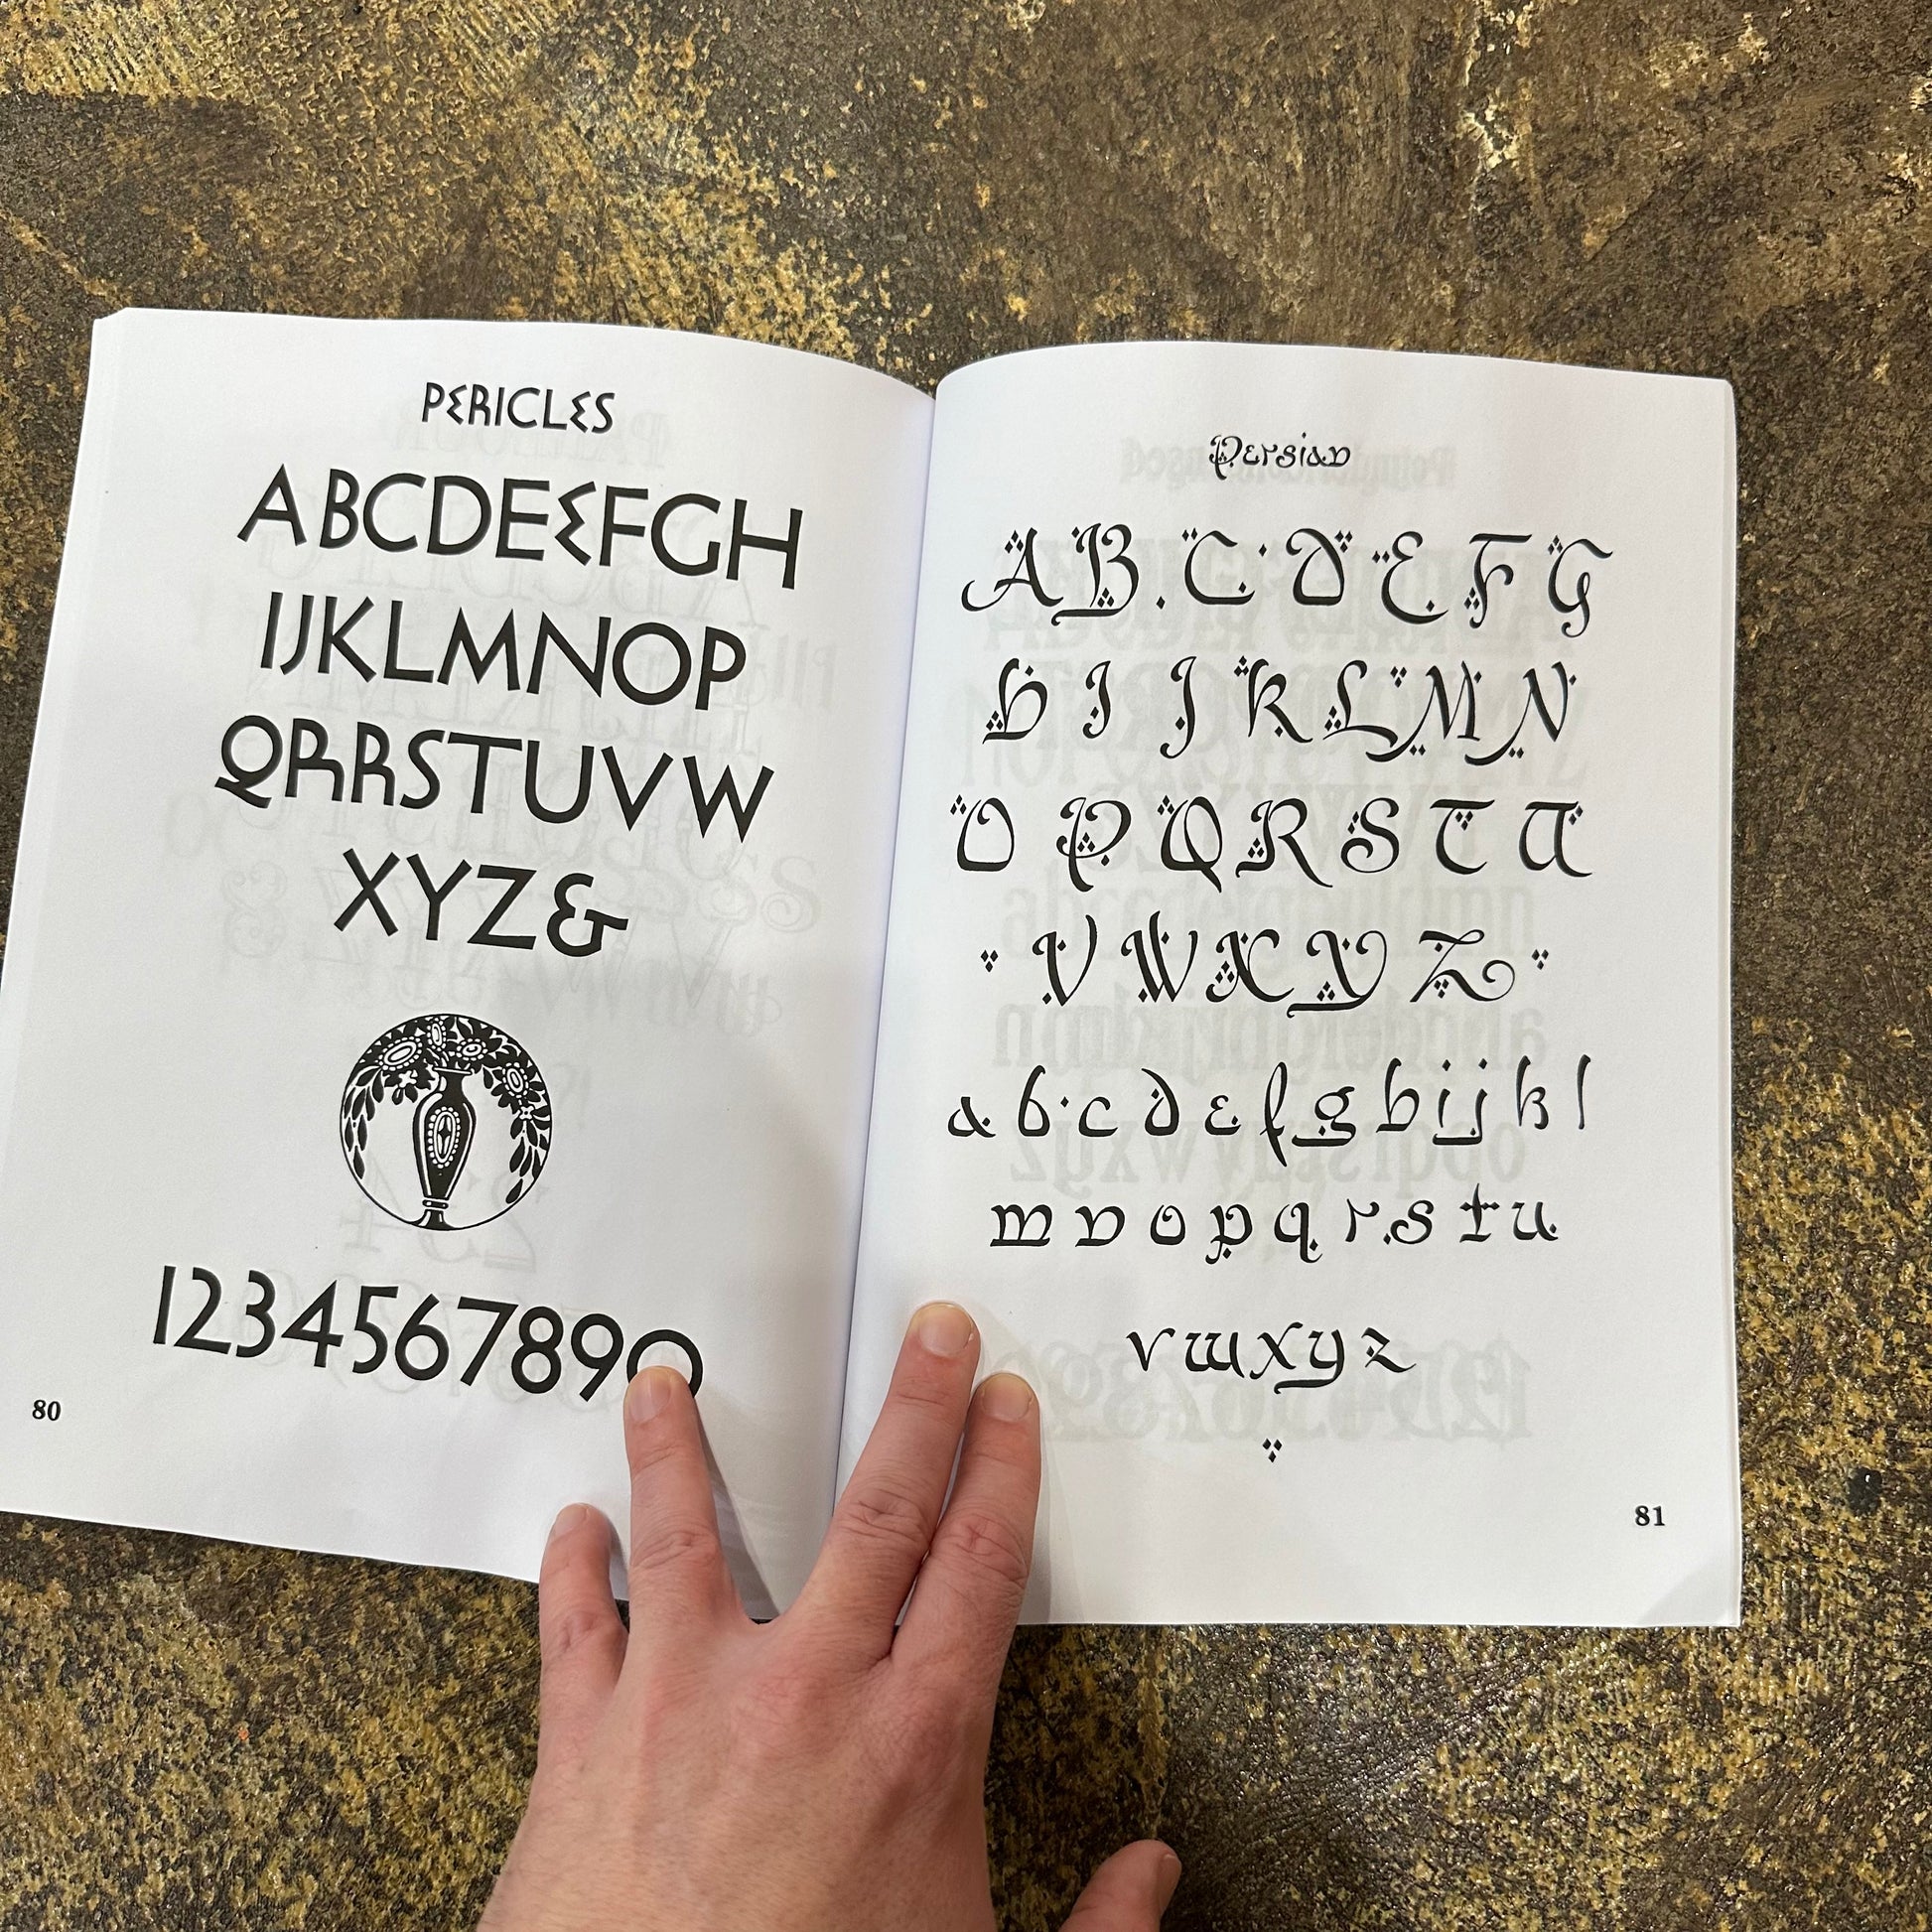 PERICLES
ABCDEƐFGH
IJKLMNOP
QRRSTUVW
XYZ&
1234567890
80
Persian
ABCDEFG
HIJKLMN
OPQRSTU
VWXYZ
abcdefghijkl
mnopqrstu
vwxyz
81